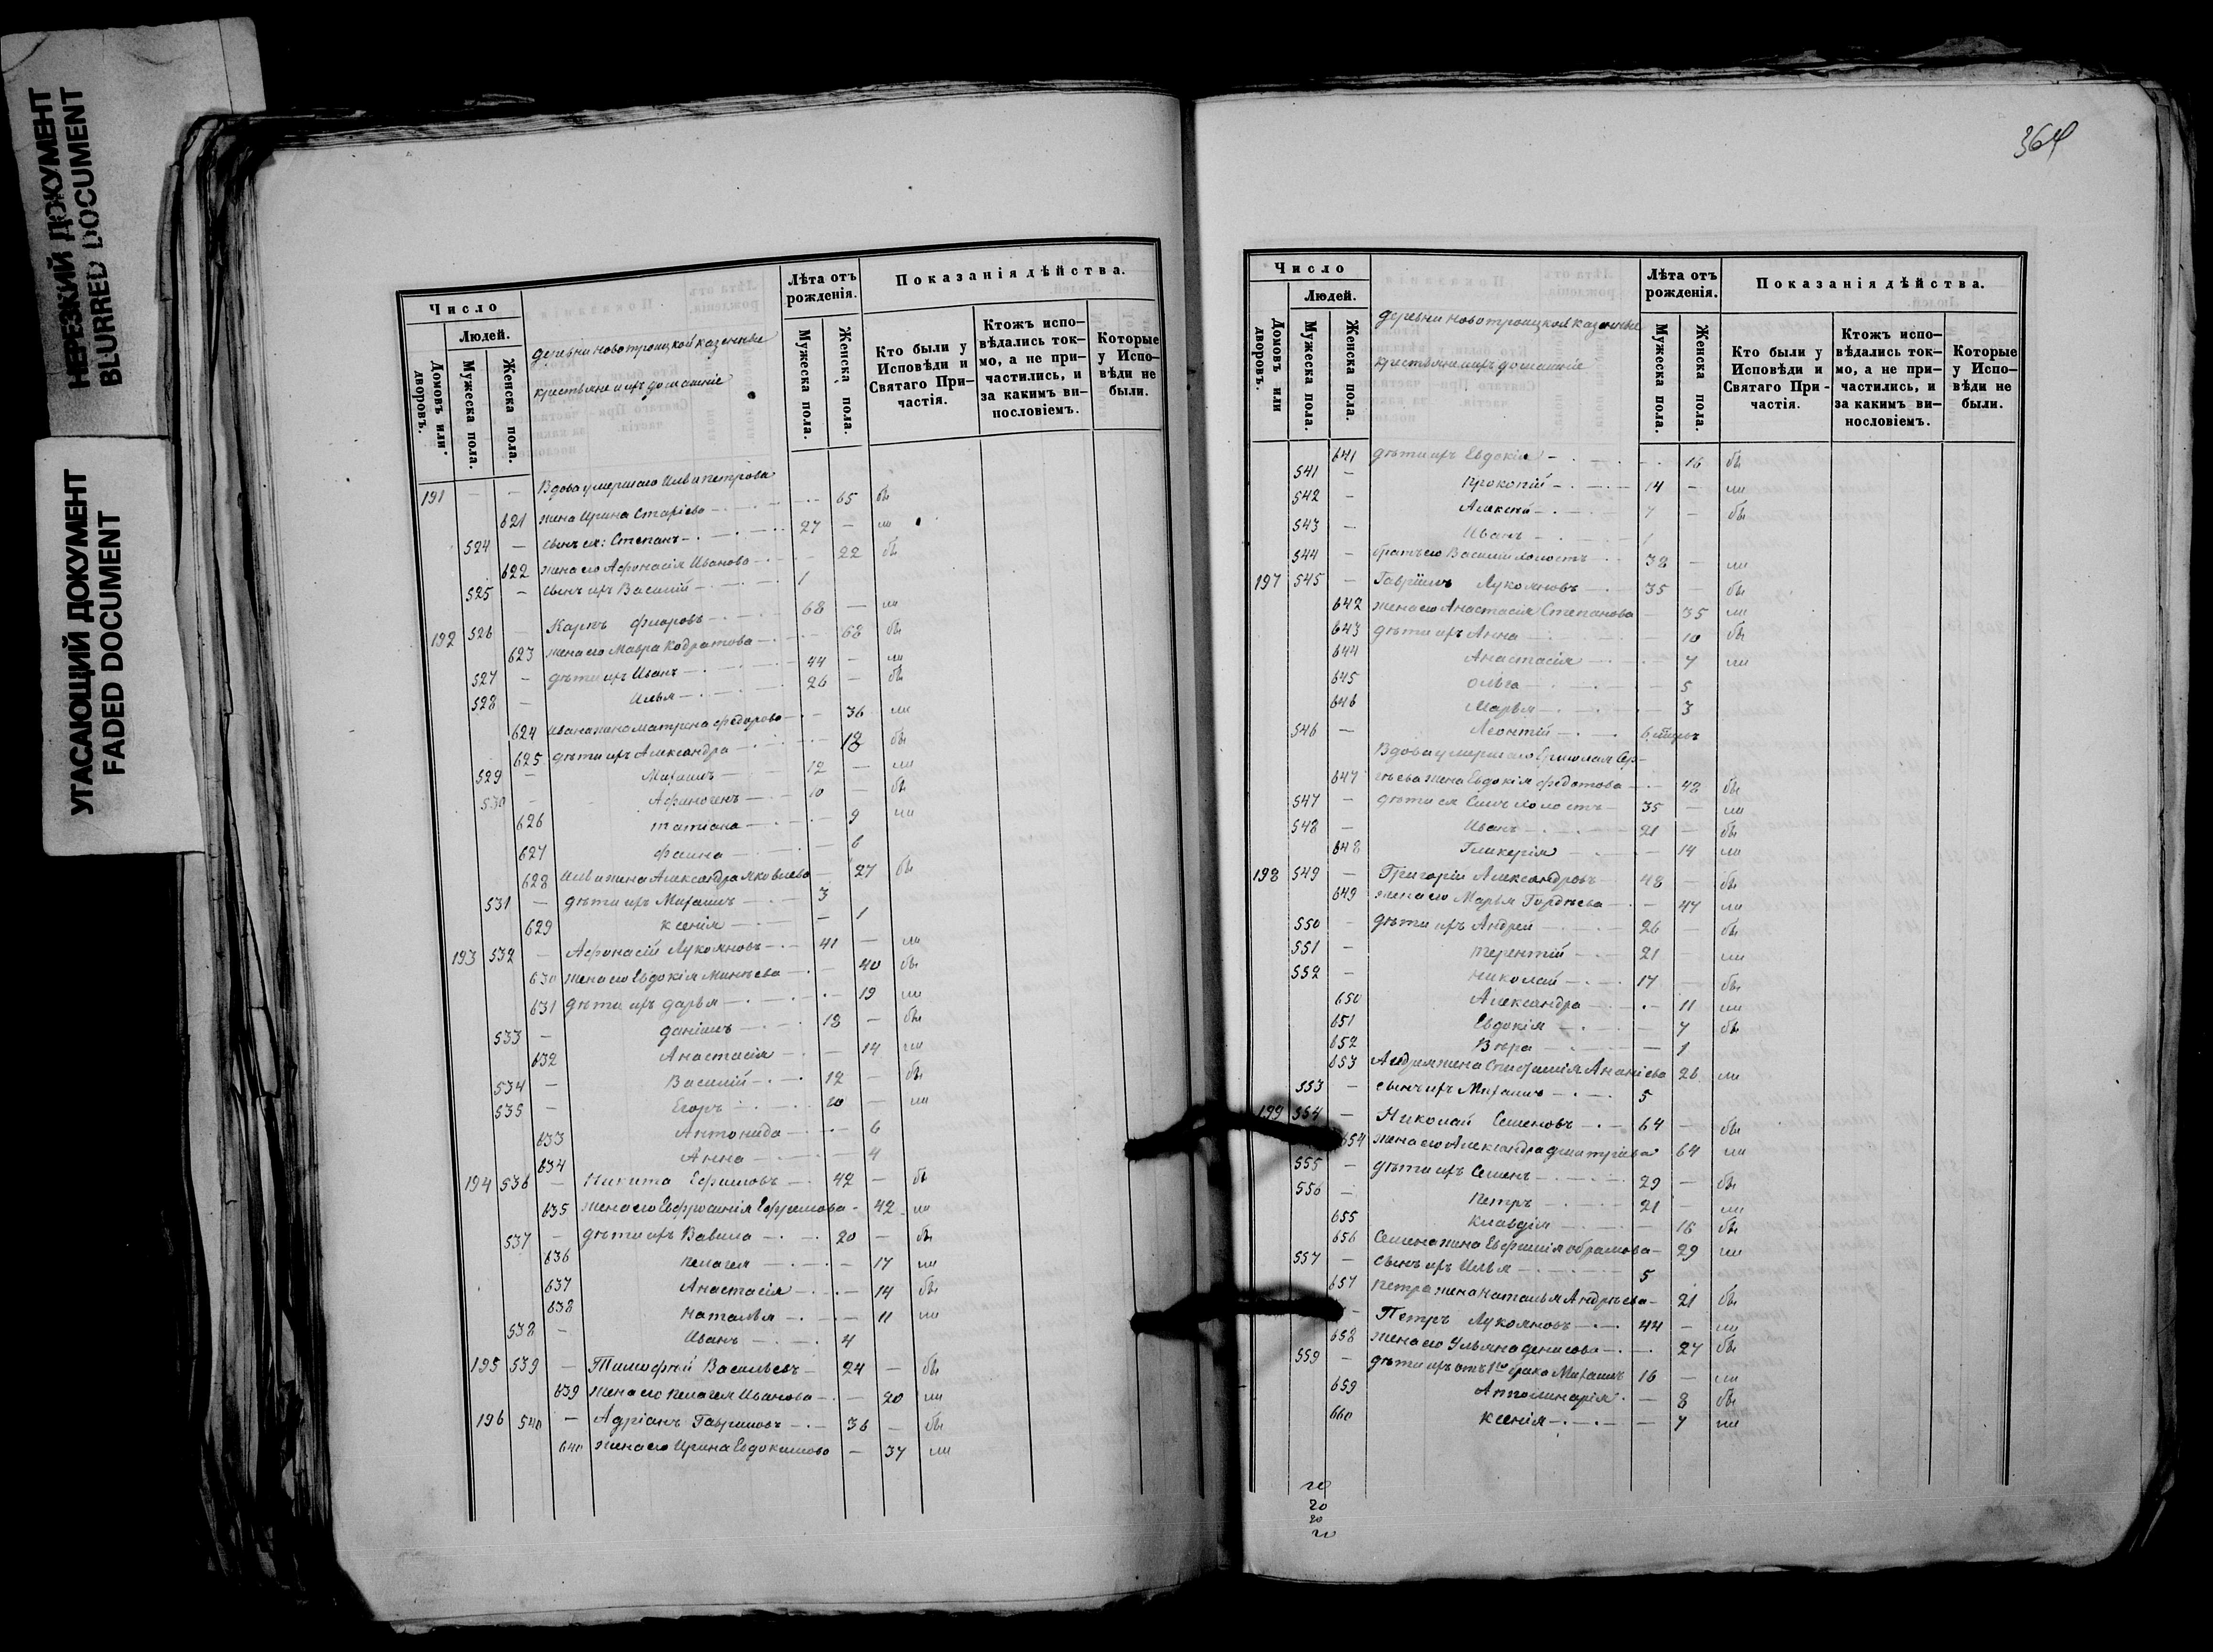 НЕРЕЗКИЙ ДОКУМЕНТ
BLURRED DOCUMENT
УГАСАЮЩИЙ ДОКУМЕНТ
FADED DOCUMENT
Число
Людей.
Домовъ или дворовъ.
Мужеска пола.
Женска пола.
деревни новотроицкой казенные
крестьяне и ихъ домашніе
Лѣта отъ рожденія.
Мужеска пола.
Женска пола.
Показанія дѣйства.
Кто были у Исповѣди и Святаго Причастія.
Ктожъ исповѣдались токмо, а не причастились, и за какимъ винословіемъ.
Которые у Исповѣди не были.
191 — — Вдова умершаго Ильи петрова
621 жена Ирина 65 бы
524 — сынъ ея: Степанъ 27 — ли
622 жена его Афонасія Иванова 22 бы
525 — сынъ ихъ Василій 1
192 526 — Карпъ Флоровъ 68 — ли
623 жена его Мавра Кодратова 68 бы
527 — дѣти ихъ Иванъ 44 — ли
528 — Илья 26 — бы
624 Ивана жена Матрена федорова 36 ли
625 дѣти ихъ Александра 18 бы
529 — Михаилъ 12 — ли
530 — Афиногенъ 10 — бы
626 татіана 9 ли
627 фаина 6
628 Ильи жена Александра яковлева 27 бы
531 — дѣти ихъ Михаилъ 3
629 ксенія — 1
193 532 — Афонасій Лукояновъ 41 — ли
630 жена его Евдокія Минѣева — 40 бы
631 дѣти ихъ дарья — 19 ли
533 — даніилъ 18 — бы
632 Анастасія — 14 ли
534 — Василій 12 — бы
535 — Егоръ 10 — ли
633 Антонида — 6
634 Анна — 4
194 536 — Никита Ефимовъ 42 — бы
635 жена его Ефросинія Ефремова 42 ли
537 — дѣти ихъ Вавила 20 — бы
636 пелагея — 17 ли
637 Анастасія — 14 бы
638 наталья — 11 ли
538 — Иванъ 4
195 539 — Тимофей Васильевъ 24 — бы
639 жена его пелагея Иванова — 20 ли
196 540 — Адріанъ Гавриловъ 36 — бы
640 жена его Ирина Евдокимова — 37 ли
364
Число
Людей.
Домовъ или дворовъ.
Мужеска пола.
Женска пола.
деревни новотроицкой казенные
крестьяне и ихъ домашніе
Лѣта отъ рожденія.
Мужеска пола.
Женска пола.
Показанія дѣйства.
Кто были у Исповѣди и Святаго Причастія.
Ктожъ исповѣдались токмо, а не причастились, и за какимъ винословіемъ.
Которые у Исповѣди не были.
641 дѣти ихъ Евдокія 16 бы
541 — прокопій 14 — ли
542 — Алексѣй 7 — бы
543 — Иванъ 1
544 — братъ его Василій холостъ 38 — ли
197 545 — Гавріилъ Лукояновъ 35 — бы
642 жена его Анастасія Степанова 35 ли
643 дѣти ихъ Анна — 10 бы
644 Анастасія — 7 ли
645 ольга — 5
646 Марья — 3
546 — Леонтій
Вдова умершаго
647 жена Евдокія федотова — 48 бы
547 — дѣти ея холостъ 35 — ли
548 — Иванъ 21 — бы
648 Гликерія — 14 ли
198 549 — Григорій Александровъ 48 — бы
649 жена его Марья Гордѣева — 47 ли
550 — дѣти ихъ Андрей 26 — бы
551 — терентій 21 — ли
552 — николай 17 — бы
650 Александра — 11 ли
651 Евдокія — 7 бы
652 Вѣра — 1
653 Андрея жена Ананіева 26 ли
553 — сынъ ихъ Михаилъ 5
199 554 — Николай Семеновъ 64 — бы
654 жена его Александра дмитріева 64 ли
555 — дѣти ихъ Семенъ 29 — бы
556 — петръ 21 — ли
655 клавдія — 16 бы
656 Семена жена Евфимія обрамова 29 ли
557 — сынъ ихъ Илья 5
657 петра жена наталья Андрѣева 21 бы
— Петръ Лукояновъ 44 — ли
658 жена его Ульяна денисова 27 бы
559 — дѣти ихъ отъ 1го брака Михаилъ 16 — ли
659 Апполинарія — 8 бы
660 ксенія — 7 ли
20
20